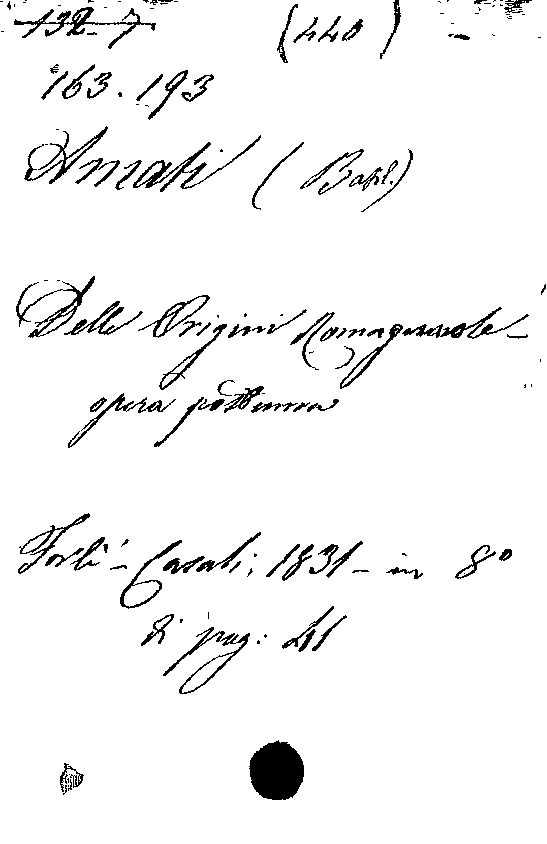 132-7 (440) -
163.193
Amati (Basil.)
Delle Origini Romagnuole -
opera postuma
Forlì - Casali; 1831 - in 8º
di pag: 41